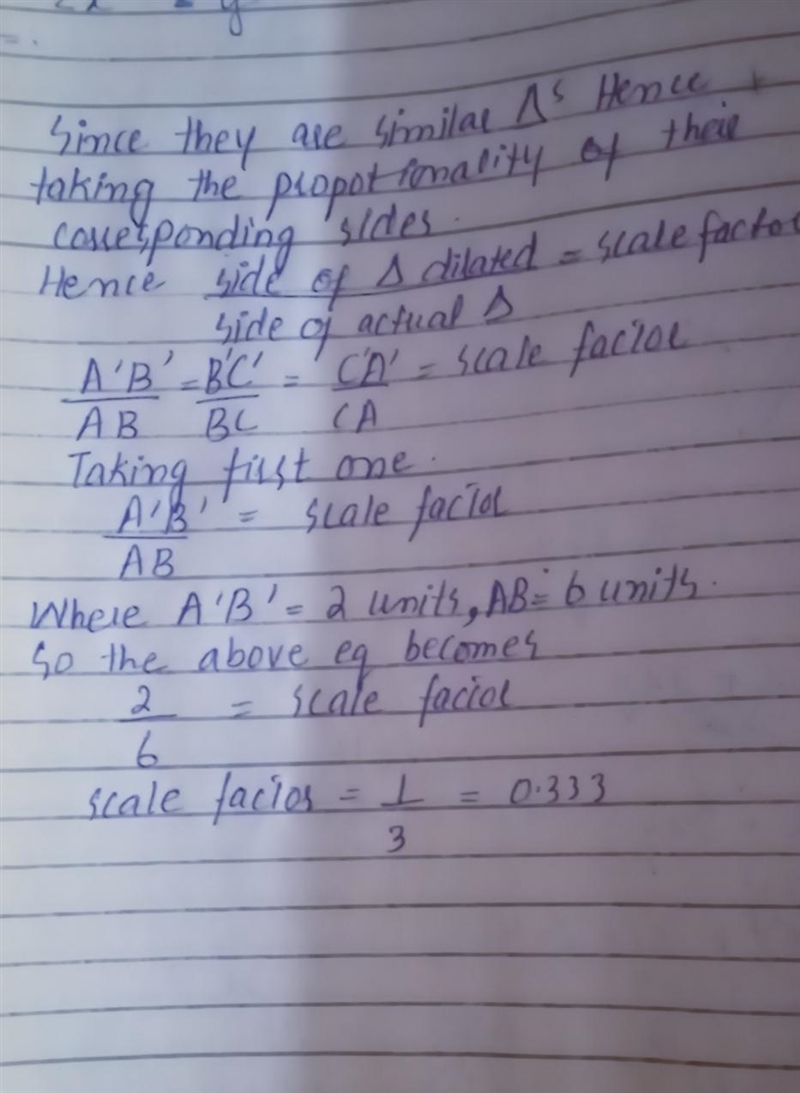 Since they are similar Δs Hence
taking the propotionality of their
corresponding sides.
Hence side of Δ dilated = scale factor
side of actual Δ
A'B' = B'C' = C'A' = scale factor
AB BC CA
Taking first one.
A'B' = scale factor
AB
Where A'B' = 2 units, AB = 6 units.
So the above eq becomes
2 = scale factor
6
scale factor = 1 = 0.333
3